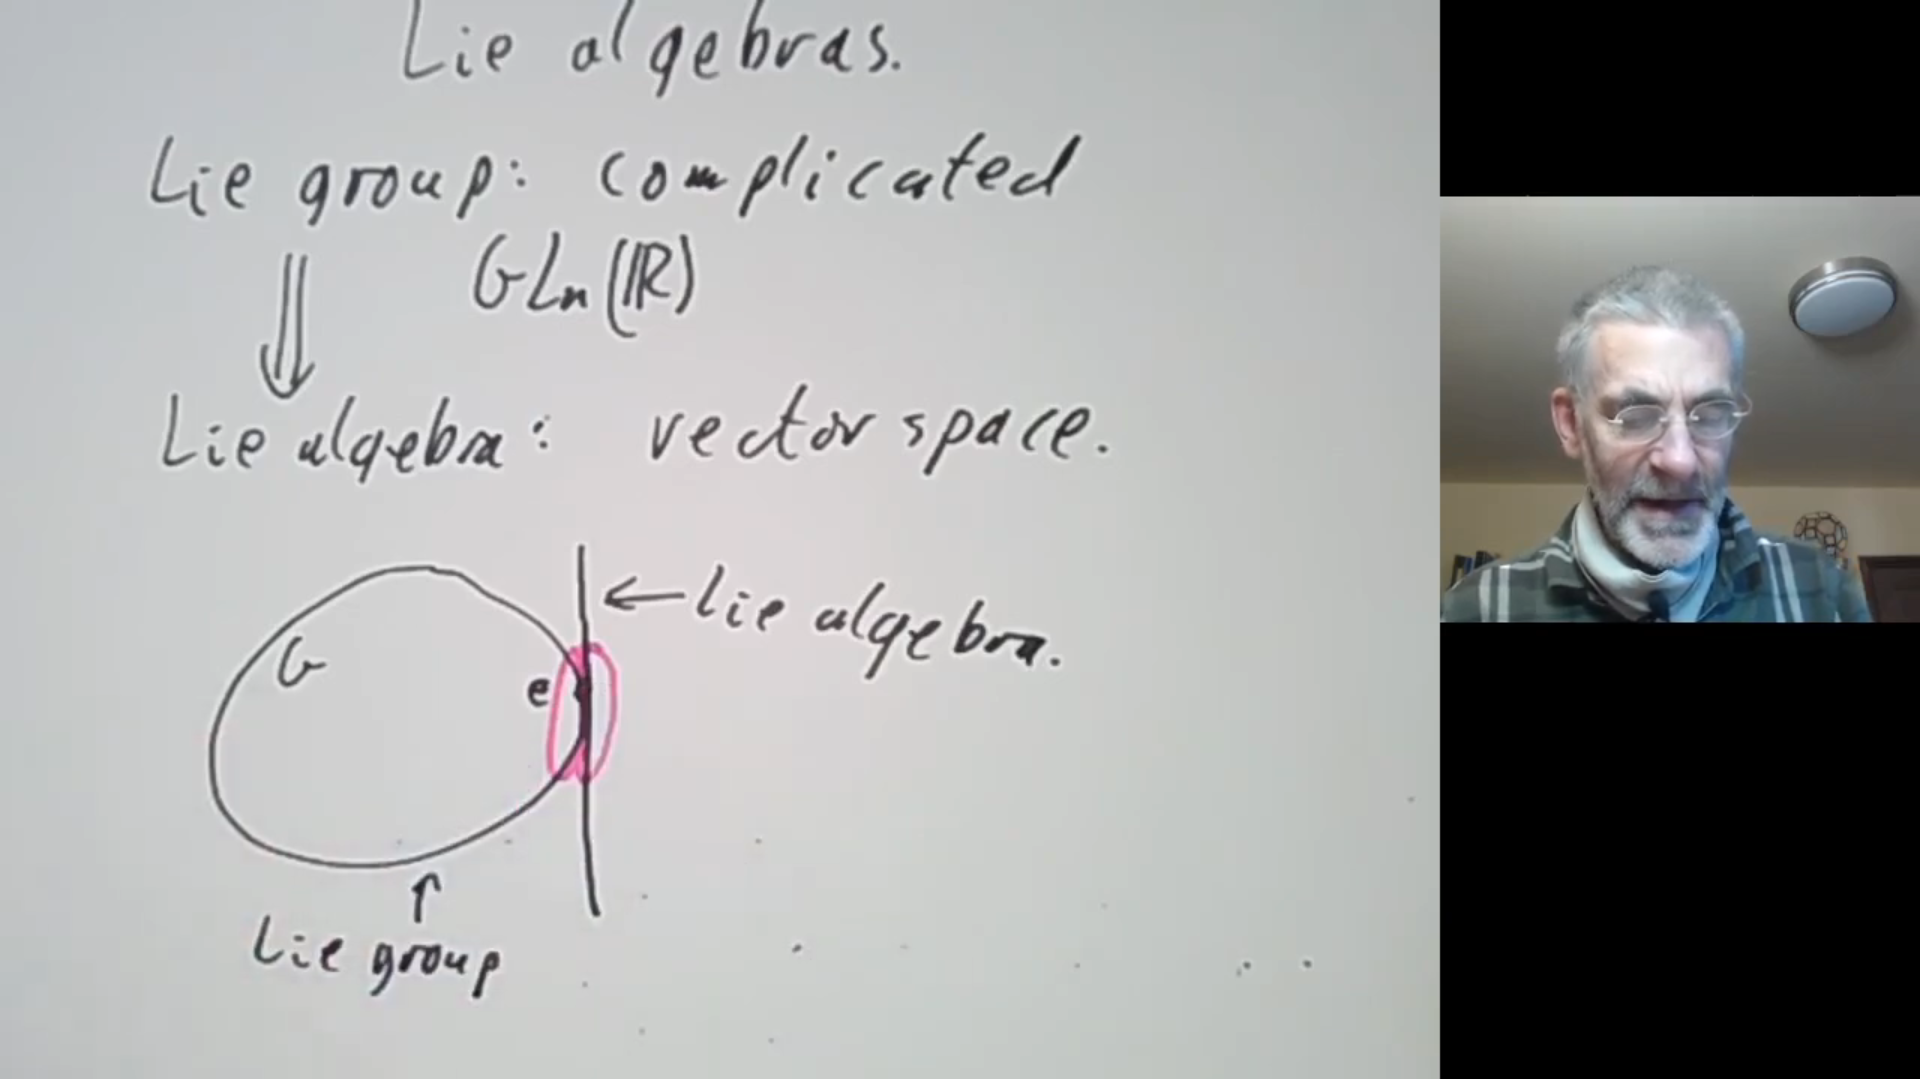 Lie algebras.
Lie group: complicated
GLn(ℝ)
Lie algebra: vector space.
← Lie algebra.
G
e
↑
Lie group